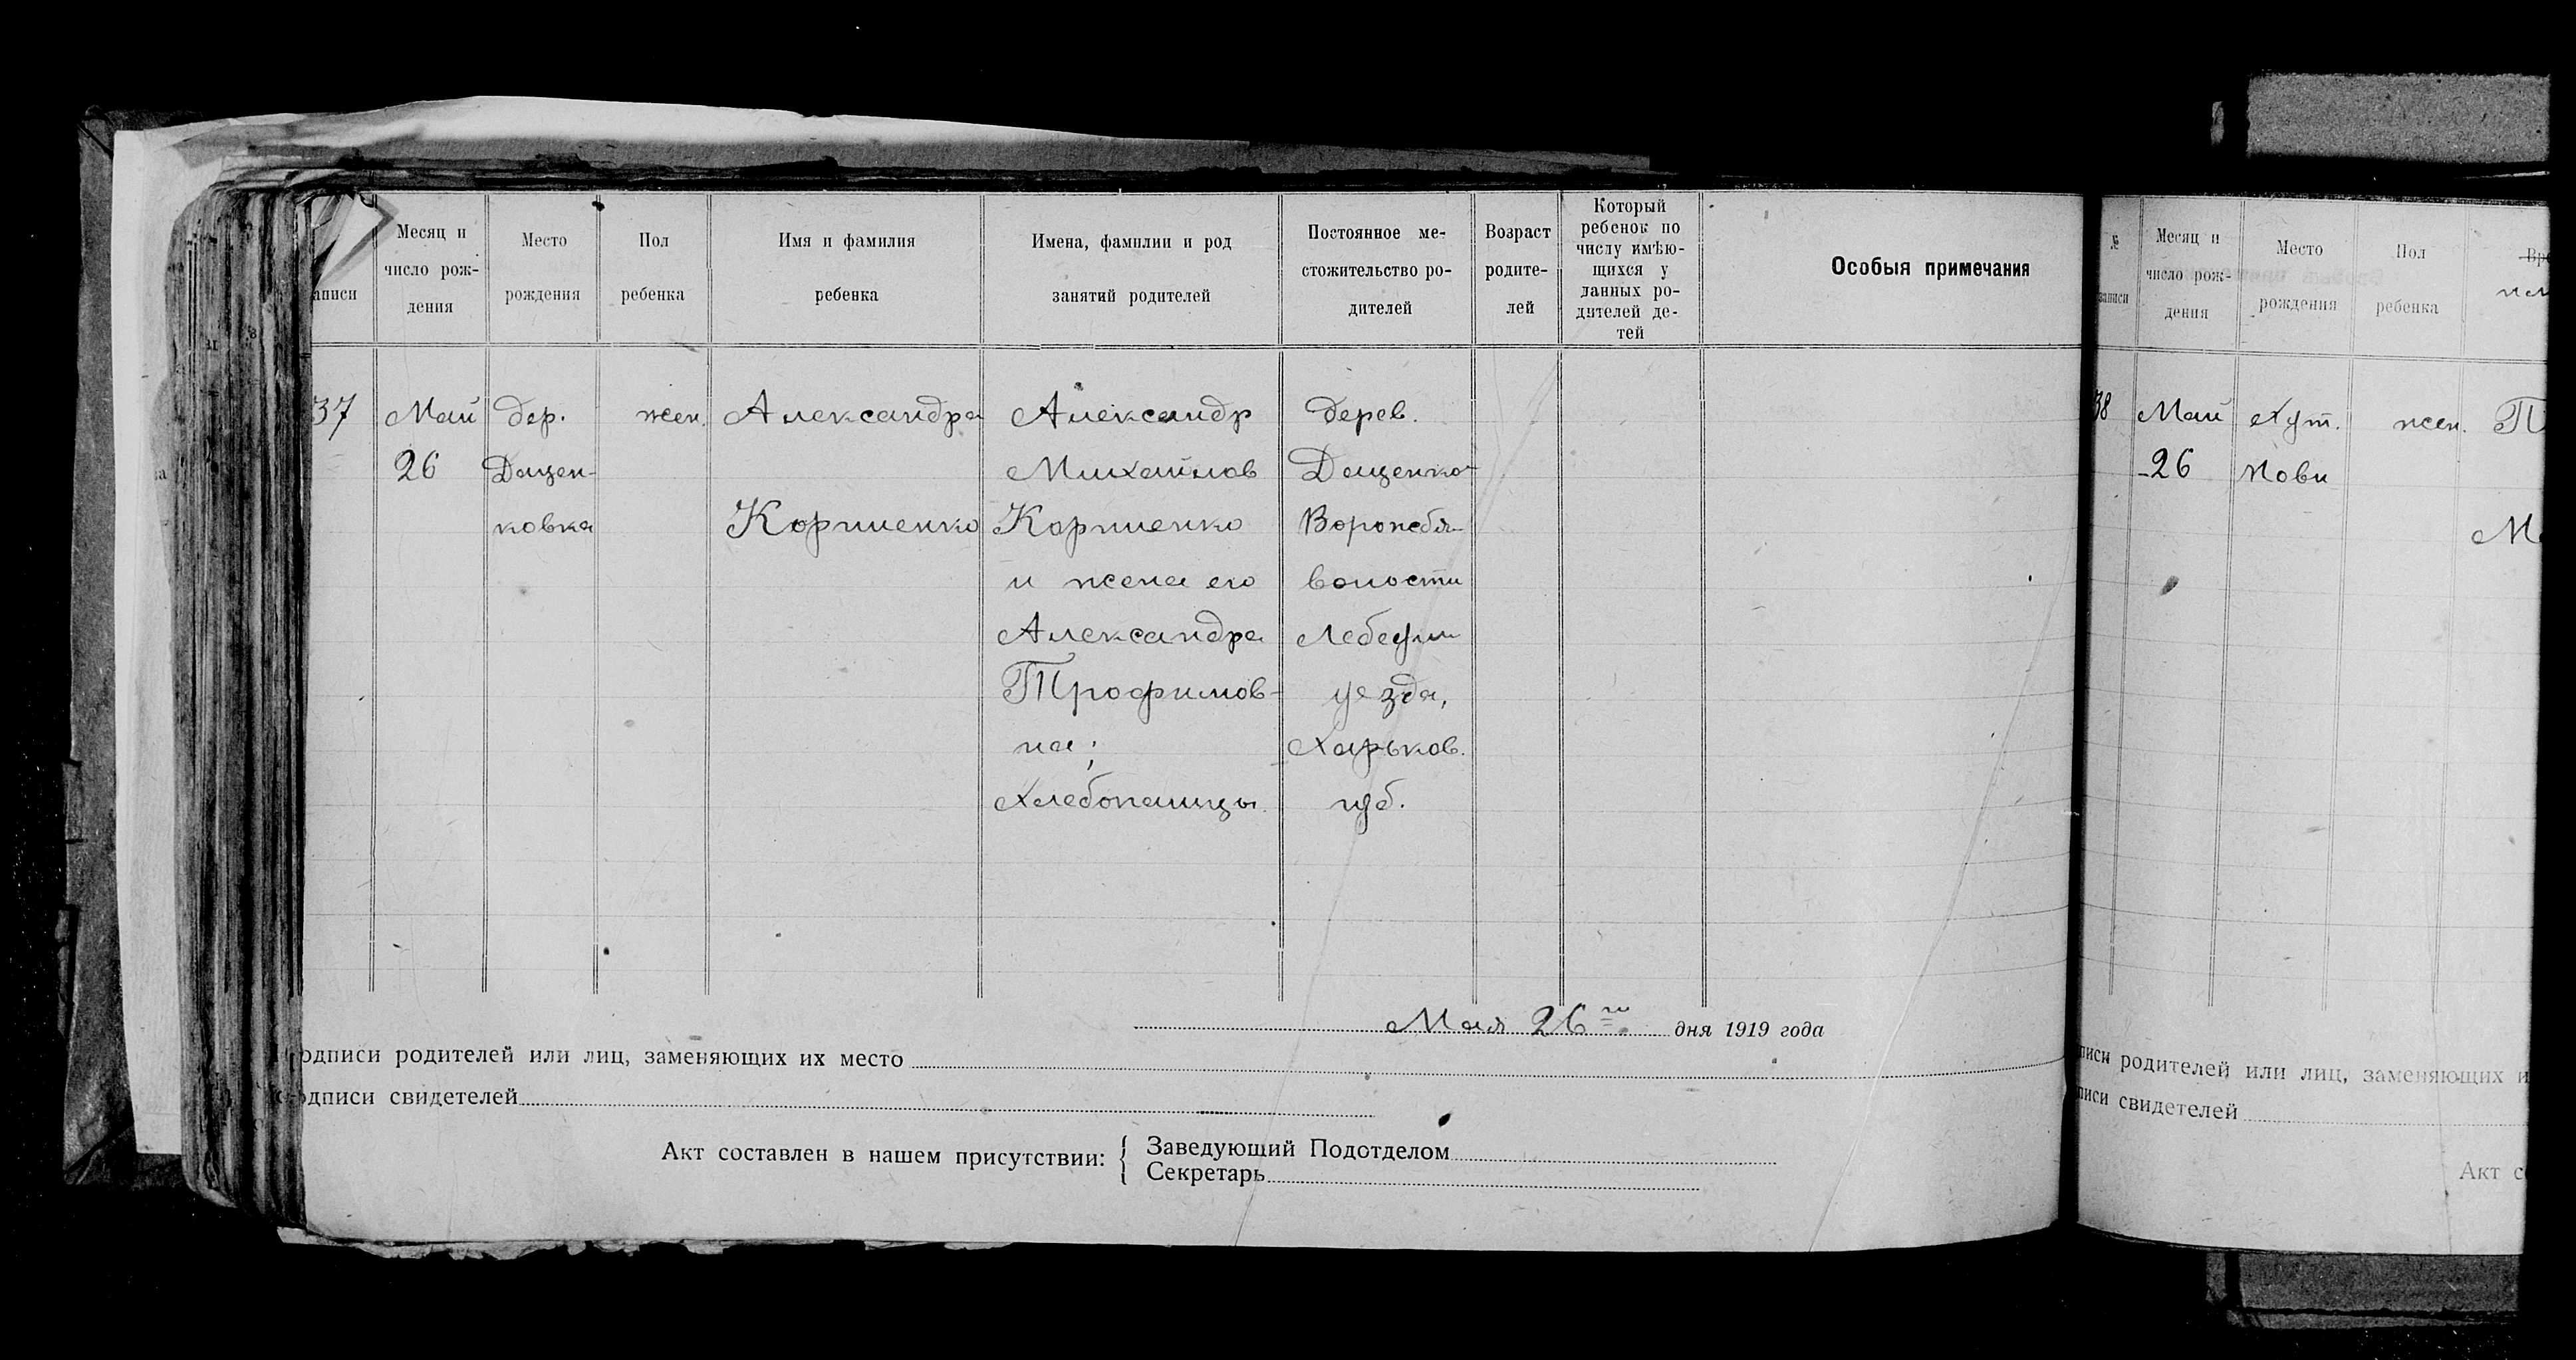 аписи
Месяц и
число рож-
дения
Место
рождения
Пол
ребенка
Имя и фамилия
ребенка
Имена, фамилии и род
занятий родителей
Постоянное ме-
стожительство ро-
дителей
Возраст
родите-
лей
Который
ребенок по
числу имѣю-
щихся у
данных ро-
дителей де-
тей
Особыя примечания
37 Май дер. жен. Александра Александр дерев.
26 Дацен- Михайлов Даценко-
ковка Корниенко Корниенко Ворожбя-
и жена его волости
Александра Лебедин
Трофимов- уезда,
на; Харьков.
Хлебопашцы. губ.
Мая 26 го дня 1919 года
одписи родителей или лиц, заменяющих их место
одписи свидетелей
Акт составлен в нашем присутствии:
Заведующий Подотделом
Секретарь
№
записи
Месяц и
число рож-
дения
Место
рождения
Пол
ребенка
38 Май Хут. жен. П
26 Нови
М
писи родителей или лиц, заменяющих и
писи свидетелей
Акт с